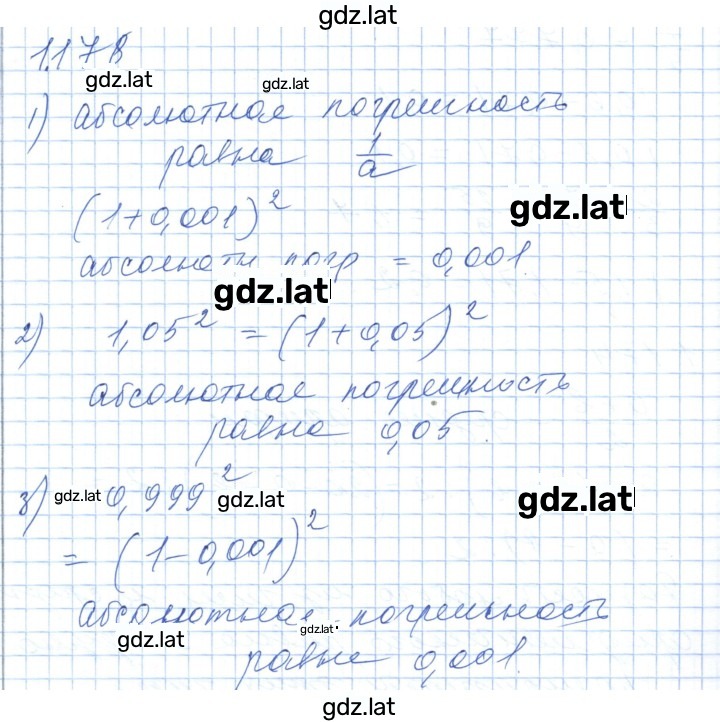 gdz.lat
1.178
gdz.lat gdz.lat
1) абсолютная погрешность
равна 1/a
gdz.lat
(1+0,001)²
абсолютн погр = 0,001
gdz.lat
2) 1,05² = (1+0,05)²
абсолютная погрешность
равна 0,05.
3) gdz.lat 0,999² gdz.lat gdz.lat
= (1-0,001)²
абсолютная погрешность
gdz.lat gdz.lat
равна 0,001.
gdz.lat